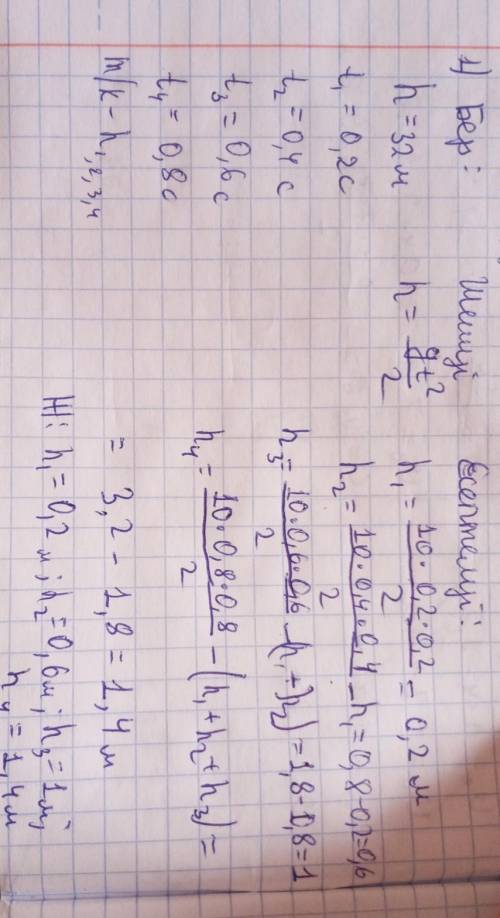 1) Бер:
h = 32 м
t₁ = 0,2 с
t₂ = 0,4 с
t₃ = 0,6 с
t₄ = 0,8 с
т/к - h₁,₂,₃,₄
Шешуі
h = gt²/2
Есептелуі:
h₁ = 10·0,2·0,2/2 = 0,2 м
h₂ = 10·0,4·0,4/2 - h₁ = 0,8-0,2=0,6
h₃ = 10·0,6·0,6/2 - (h₁+h₂) = 1,8-0,8=1
h₄ = 10·0,8·0,8/2 - (h₁+h₂+h₃) =
= 3,2 - 1,8 = 1,4 м
Ж: h₁ = 0,2 м; h₂ = 0,6 м; h₃ = 1 м;
h₄ = 1,4 м